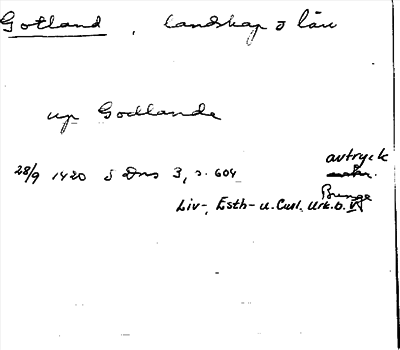 Gotland, landskap o län
up Godlande
avtryck
28/9 1420 S Dns 3, s. 604
Bunge
Liv-, Esth- u. Curl. Urk. b. V